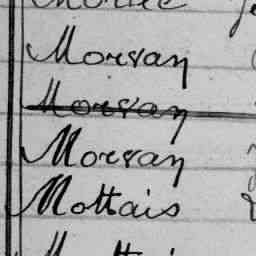 Morvan
Morvan
Morvan
Mottais